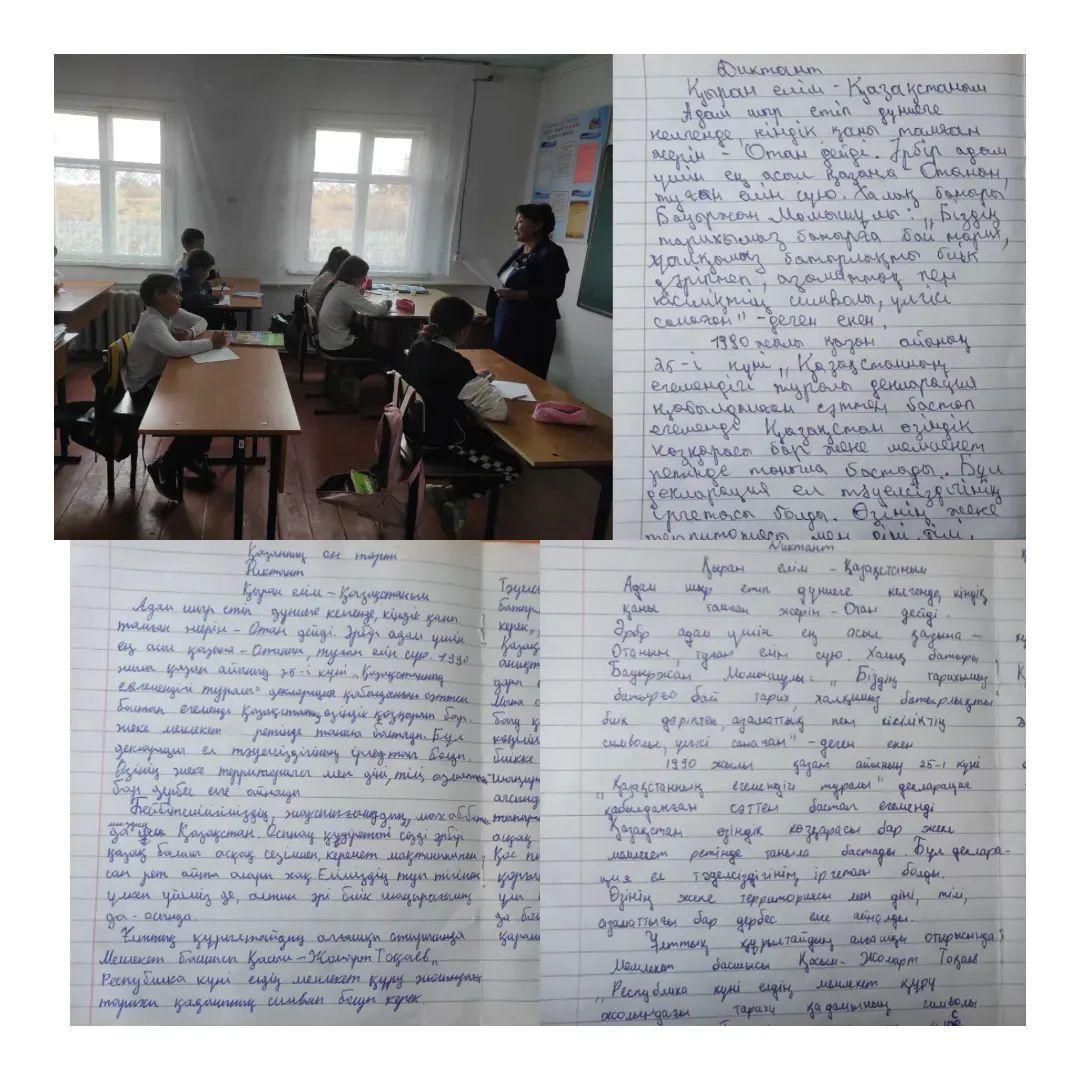 Диктант
Қыран елім - Қазақстаным
Адам шыр етіп дүниеге
келгенде, кіндік қаны тамған
жерін - Отан дейді. Әрбір адам
үшін ең асыл қазына Отанын,
туған елін сүю. Халық батыры
Бауыржан Момышұлы: „Біздің
тарихымыз батырға бай тарих,
халқымыз батырлықты биік
дәріптеп, азаматтық пен
кісіліктің символы, үлгісі
санаған" - деген екен.
1990 жылы қазан айының
25-і күні „Қазақстанның
егемендігі туралы декларация
қабылданған сәттен бастап
егеменді Қазақстан өзіндік
көзқарасы бар жеке мемлекет
ретінде таныла бастады. Бұл
декларация ел тәуелсіздігінің
іргетасы болды. Өзінің жеке
территориясы мен діні, тілі,
Қазанның он төрті
Диктант
Қыран елім - Қазақстаным
Адам шыр етіп дүниеге келгенде, кіндік қаны
тамған жерін - Отан дейді. Әрбір адам үшін
ең асыл қазына - Отанын, туған елін сүю. 1990
жылы қазан айының 25-і күні „Қазақстанның
егемендігі туралы" декларация қабылданған сәттен
бастап егеменді Қазақстанның өзіндік көзқарасы бар.
жеке мемлекет ретінде таныла бастады. Бұл
декларация ел тәуелсіздігінің іргетасы болды.
Өзінің жеке территориясы мен діні, тілі, азаматтық
бар дербес еле айналды
Бейбітшіліктің, жарығындың, махаббаттың
да Қазақстан. Осынау құдіретті сөзді әрбір
қазақ баласы асқақ сезіммен, керемет мақтанышпен
сан рет айта алары хақ. Еліміздің туы тігілген
үлкен үйіміз де, алтын әрі биік шаңырағымыз
да - осында.
Ұлттық құрылтайдың алғашқы отырысында
Мемлекет басшысы Қасым-Жомарт Тоқаев „
Республика күні елдің мемлекет құру жолындағы
тарихи қадамының символы болуы керек.
Диктант
Қыран елім - Қазақстаным
Адам шыр етіп дүниеге келгенде, кіндік
қаны тамған жерін - Отан дейді.
Әрбір адам үшін ең асыл қазына -
Отанын, туған елін сүю. Халық батыры
Бауыржан Момышұлы: „Біздің тарихымыз
батырға бай тарих, халқымыз батырлықты
биік дәріптеп, азаматтық пен кісіліктің
символы, үлгісі санаған" - деген екен
1990 жылы қазан айының 25-і күні
„Қазақстанның егемендігі туралы" декларация
қабылданған сәттен бастап егеменді
Қазақстан өзіндік көзқарасы бар жеке
мемлекет ретінде таныла бастады. Бұл деклара-
ция ел тәуелсіздігінің іргетасы болды.
Өзінің жеке территориясы мен діні, тілі,
азаматтығы бар дербес еле айналды.
Ұлттық құрылтайдың алғашқы отырысында
Мемлекет басшысы Қасым-Жомарт Тоқаев
„Республика күні елдің мемлекет құру
жолындағы тарихи қадамының символы